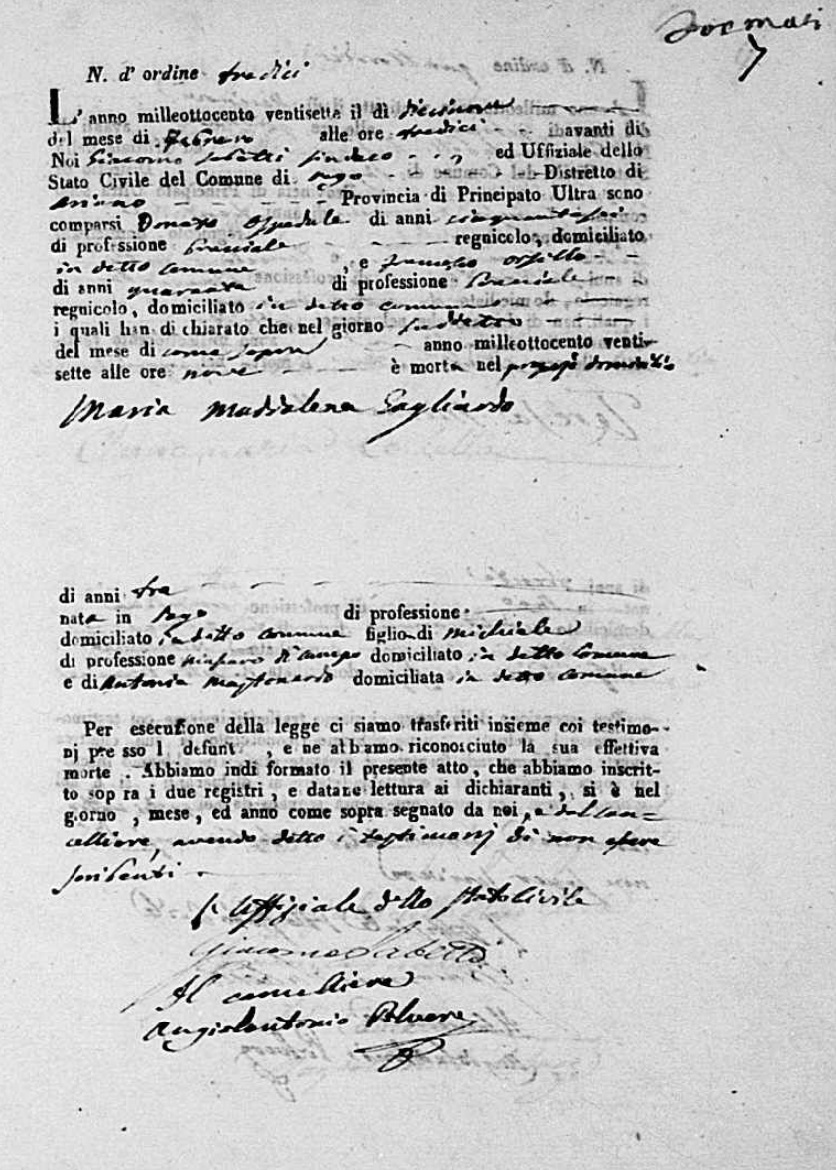 7
N. d' ordine tredici
L' anno milleottocento ventisette il dì diecinove
del mese di Febraro alle ore tredici avanti di
Noi Giacomo Sabatti Sindaco ed Uffiziale dello
Stato Civile del Comune di Distretto di
Ariano Provincia di Principato Ultra sono
comparsi Donato di anni cinquantasei
di professione Braciale regnicolo, domiciliato
in detto Comune , e
di anni quaranta di professione Braciale
regnicolo, domiciliato in detto comune
i quali han dichiarato che nel giorno suddetto
del mese di come sopra anno milleottocento venti-
sette alle ore nove è morta nel proprio domicilio
Maria Maddalena Gagliardo
di anni tre
nata in di professione
domiciliato in detto comune figlia di Michiele
di professione di campo domiciliato in detto Comune
e di Antonia domiciliata in detto comune
Per esecuzione della legge ci siamo trasferiti insieme coi testimo-
nj presso l defunt , e ne abbiamo riconosciuto la sua effettiva
morte . Abbiamo indi formato il presente atto , che abbiamo inscrit-
to sopra i due registri , e datane lettura ai dichiaranti , si è nel
giorno , mese , ed anno come sopra segnato da noi, e dal can=
celliere, avendo detto i testimonj di non essere
scribenti
L' Uffiziale dello Stato Civile
Giacomo Sabatti
Il cancelliere
Angiolantonio